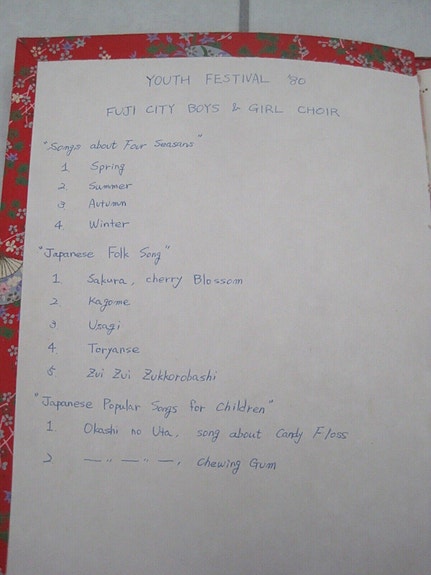 YOUTH FESTIVAL '80
FUJI CITY BOYS & GIRL CHOIR
"Songs about Four Seasons"
1. Spring
2. Summer
3 Autumn
4. Winter
"Japanese Folk Song"
1. Sakura, cherry Blossom
2. Kagome
3. Usagi
4. Toryanse
5. Zui Zui Zukkorobashi
"Japanese Popular Songs for Children"
1. Okashi no Uta, song about Candy Floss
2. — " — " —, Chewing Gum